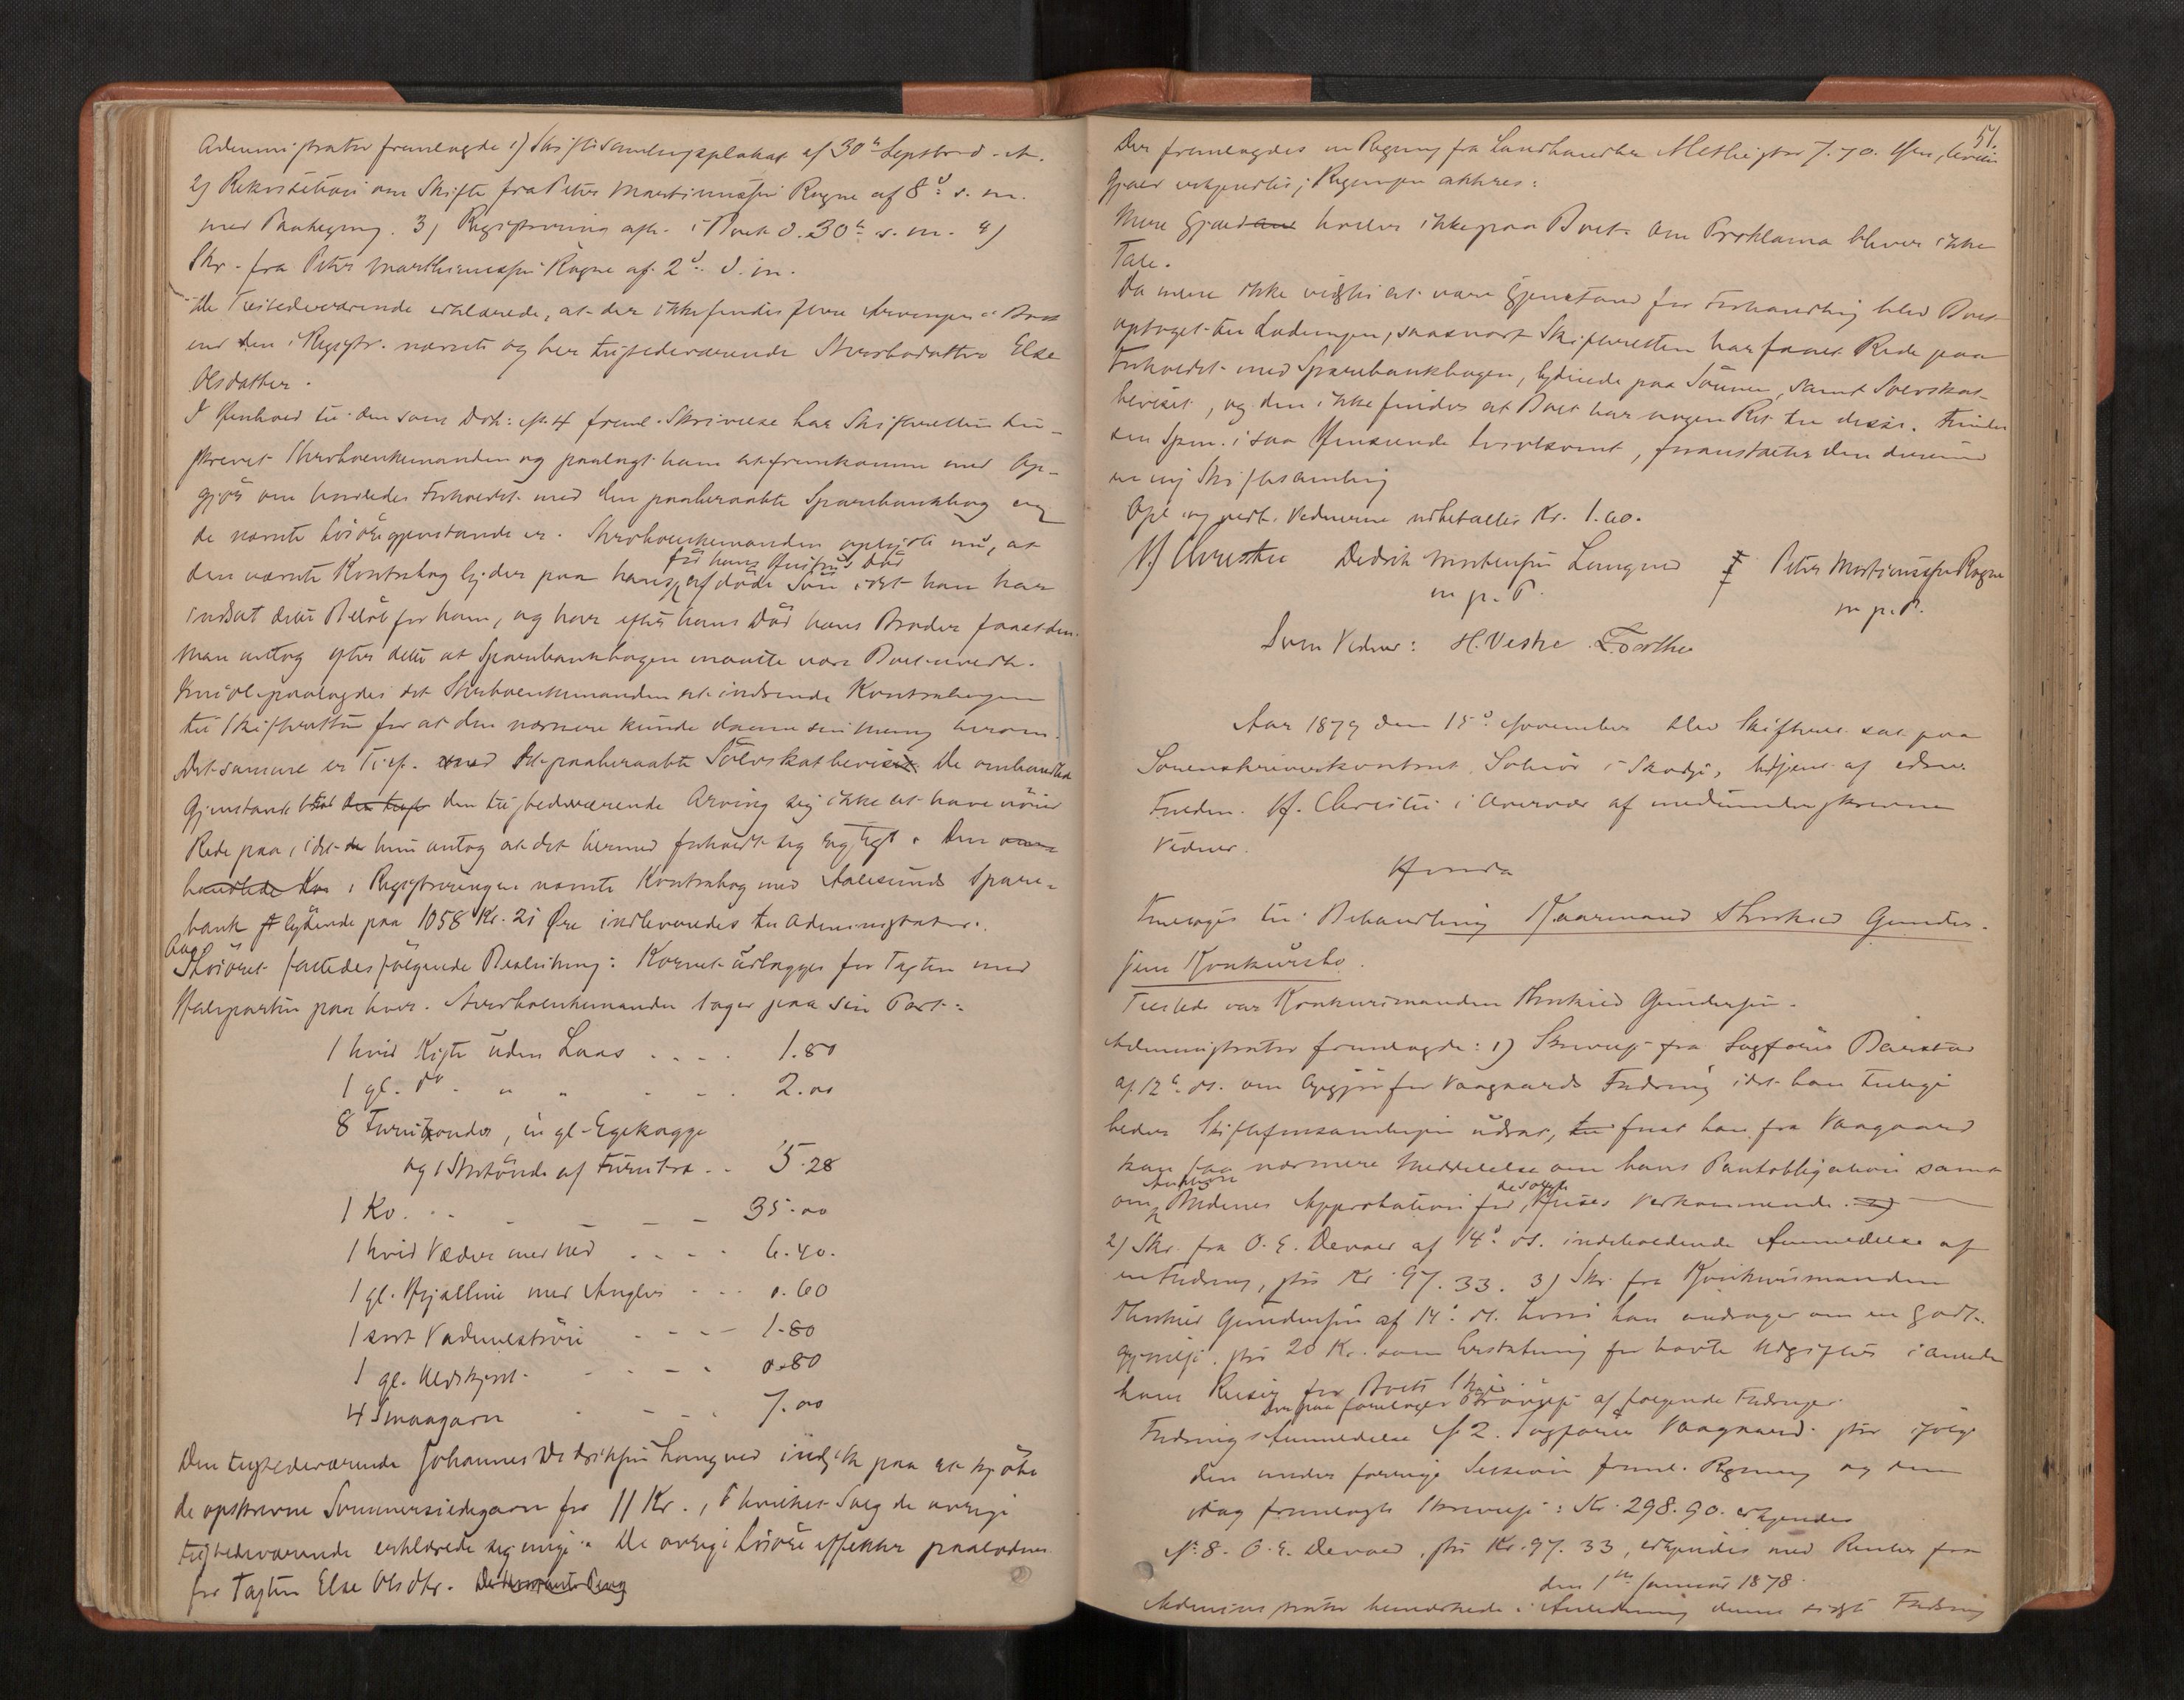 Administrator fremlagde 1) Skiftesamlingsplakat af 30te Septbr d. A.
2) Rekvisition om Skifte fra Peter Martinussen Rogne af 8de s. m.
med Paategng. 3) Registrering afh. i Boet d. 30te s. m. 4)
Skr. fra Peter Marthinussen Rogne af 2d. d. m.
De Tilstedeværende erklærede, at der ikke findes flere Arvinger i Boet
end den i Registr. nævnte og her tilstedeværende Sterbodatter Else
Olsdatter.
I Henhold til den som Dok: No. 4 freml. Skrivelse har Skifteretten til-
skrevet Sterboenkemanden og paalagt ham at fremkomme med Op-
gjør om hvorledes Forholdet med den paaberaabte Sparebankbog og
de nævnte Løsøregjenstande er. Sterboenkemanden oplyste nu, at
før hans Hustrus Død
den nævnte Kontrabog lyder paa hans afdøde Søn idet han har
indsat dette Beløb for ham, og har efter hans Død hans Broder faaet den.
Man antog efter dette at Sparebankbogen maatte være Boet uvedk.
paalagdes det Sterboenkemanden at indsende Kontrabogen
til Skifteretten for at den nærmere kunde danne sin Mening herom.
Det samme er Tilf. med det paaberaabte Sølvskatbevis. De omhandlede
Gjenstande den tilstedeværende Arving sig ikke at have nøie
Rede paa, idet hun antog at det hermed forholdt sig rigtigt. Den
i Registreringen nævnte Kontrabog med Aalesunds Spare-
bank lydende paa 1058 Kr. 21 Øre indleveredes til Administrator.
Ang. Løsøret fattedes følgende Beslutning: Kornet udlægges for Taxten med
Halvparten paa hver. Sterboenkemanden tager paa sin Part:
1 hvid Kiste uden Laas . . . . 1.80
1 gl. do. " " . . . 2.00
8 Furutønder, en gl. Egekagge
og 1 Stertønde af Furutræ . . 5.28
1 Ko . . . 35.00
1 hvid Væder med ned . . . . 6.40.
1 gl. Hyssline med Angler . . . 0.60
1 sort Vadmelstrøie . . . . 1.80
1 gl. Uldskjort. . . . . 0.80
4 Smaagarn . . . . 7.00
Den tilstedeværende Johannes Dedriksen Langned indgik paa at kjøbe
de opskrevne Sommersildegarn for 11 Kr., i hvilket Salg de øvrige
tilstedeværende erklærede sig enige. De øvrige Løsøre effekter paalodnes
for Taxten Else Olsdtr.
51.
Der fremlagdes en Regning fra Landhandler Methi stor 7.70. Gjen,
Gjæld vedgjendtes; Regningen akkres:
Mere Gjæld hviler ikke paa Boet. Om Proklama bliver ikke
Tale.
Da mere ikke vidstes at være Gjenstand for Forhandling blev Boet
optaget til Ludningen, saasnart Skifteretten har faaet Rede paa
Forholdet med Sparebankbogen, lydende paa Sønnen, samt Sølvskat-
beviset, og den ikke finder at Boet har nogen Ret til disse. Finder
den Spm. i saa Henseende tvivlsomt, foranstalter den derimod
en ny Skiftesamling
Opl. og vedt. Vidnerne udbetaltes Kr. 1.60.
H. Christie Dedrik Mortensen Langned Peter Martinussen Rogne
m. p. P. m. p. P.
Som Vidner: H. Vestre
Aar 1879 den 15de November blev Skifteret sat paa
Sorenskriverkontoret Solnør i Skodje, betjent af edsv.
Fuldm. H. Christie i Overvær af medunderskrevne
Vidner.
Hvorda
Foretoges til Behandling Kaarmand Thorkild Gunder-
sens Konkursbo.
Tilstede var Konkursmanden Thorkild Gundersen.
Administrator fremlagde: 1) Skrivelse fra Sagfører Barstad
af 12te ds. om Opgjør for Vaagaards Fordring idet han tillige
beder Skifteforsamlingen udsat, forat han fra Vaagaard
kan faa nærmere Meddelelse om hans Pantobligation samt
om Budenes Approbation for Huses Vedkommende.
2) Skr. fra O. E. Devold af 14de ds. indeholdende Anmeldelse af
en Fordring, stor Kr. 97.33. 3) Skr. fra Konkursmanden
Thorkild Gundersen af 14de ds. hvori han andrager om en Godt-
gjørelse, stor 20 Kr. som Erstatning for havte Udgifter i anledn
hans Reiser for Boets Skyld.
Derpaa foretoges Prøvelse af følgende Fordringer.
Fordrings Anmeldelse No 2. Sagfører Vaagaard stor ifølge
den under forrige Session freml. Regning og den
idag fremlagte Skrivelse: Kr. 298.90. erkjendes
No. 8. O. E. Devold, stor Kr. 97.33, erkjendes med Renter fra
den 1ste Januar 1878.
Administrator bemærkede i Anledning denne sidste Fordring